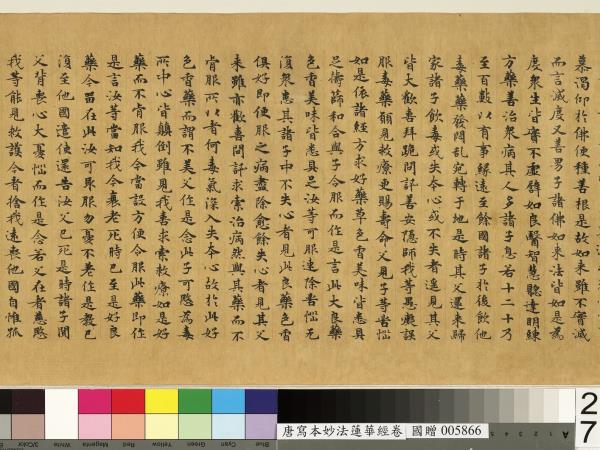 慕渴仰於佛便種善根是故如來雖不實滅
而言滅度又善男子諸佛如來法皆如是為
度衆生皆實不虛譬如良醫智慧聰達明練
方藥善治衆病其人多諸子息若十二十乃
至百數以有事緣遠至餘國諸子於後飲他
毒藥藥發悶亂宛轉于地是時其父還來歸
家諸子飲毒或失本心或不失者遙見其父
皆大歡喜拜跪問訊善安隱歸我等愚癡誤
服毒藥願見救療更賜壽命父見子等苦惱
如是依諸經方求好藥草色香美味皆悉具
足擣篩和合與子令服而作是言此大良藥
色香美味皆悉具足汝等可服速除苦惱无
復衆患其諸子中不失心者見此良藥色香
俱好即便服之病盡除愈餘失心者見其父
來雖亦歡喜問訊求索治病然與其藥而不
肯服所以者何毒氣深入失本心故於此好
色香藥而謂不美父作是念此子可愍為毒
所中心皆顛倒雖見我喜求索救療如是好
藥而不肯服我今當設方便令服此藥即作
是言汝等當知我今衰老死時已至是好良
藥今留在此汝可取服勿憂不差作是教已
復至他國遣使還告汝父已死是時諸子聞
父背喪心大憂惱而作是念若父在者慈愍
我等能見救護今者捨我遠喪他國自惟孤
唐寫本妙法蓮華經卷 國贈 005866
27
3/Color White Magenta Red Yellow Green Cyan Blue